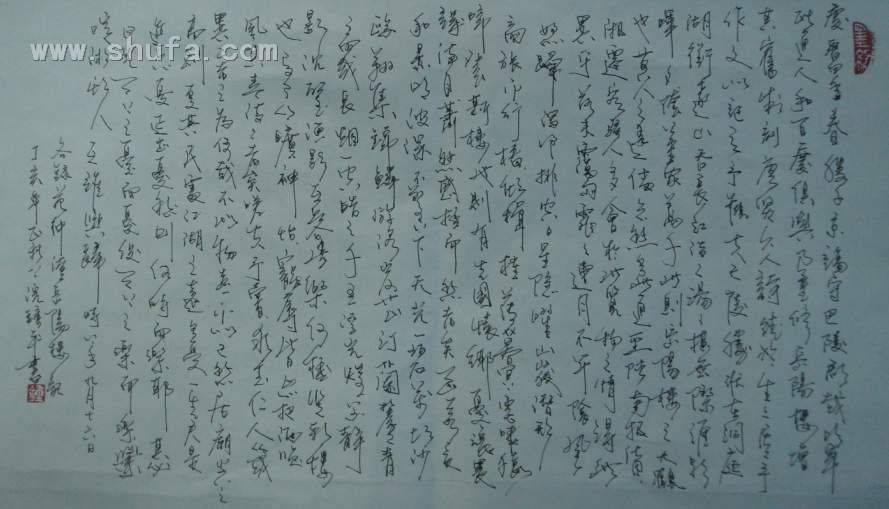 www.shufa.com
慶曆四年春滕子京謫守巴陵郡越明年
政通人和百廢俱興乃重修岳陽樓增
其舊制刻唐賢今人詩賦於其上屬予
作文以記之予觀夫巴陵勝狀在洞庭
湖銜遠山吞長江浩浩湯湯橫無際涯朝
暉夕陰氣象萬千此則岳陽樓之大觀
也前人之述備矣然則北通巫峽南極瀟
湘遷客騷人多會於此覽物之情得無
異乎若夫霪雨霏霏連月不開陰風
怒號濁浪排空日星隱曜山岳潛形
商旅不行檣傾楫摧薄暮冥冥虎嘯猿
啼登斯樓也則有去國懷鄉憂讒畏
譏滿目蕭然感極而悲者矣至若春
和景明波瀾不驚上下天光一碧萬頃沙
鷗翔集錦鱗游泳岸芷汀蘭鬱鬱青
青而或長煙一空皓月千里浮光耀金靜
影沉璧漁歌互答此樂何極登斯樓
也則有心曠神怡寵辱皆忘把酒臨
風其喜洋洋者矣嗟夫予嘗求古仁人之心或
異二者之為何哉不以物喜不以己悲居廟堂之
高則憂其民處江湖之遠則憂其君是
進亦憂退亦憂然則何時而樂耶其必
曰先天下之憂而憂後天下之樂而樂歟
噫微斯人吾誰與歸時六年九月十五日
右錄范仲淹岳陽樓記
丁亥年 書